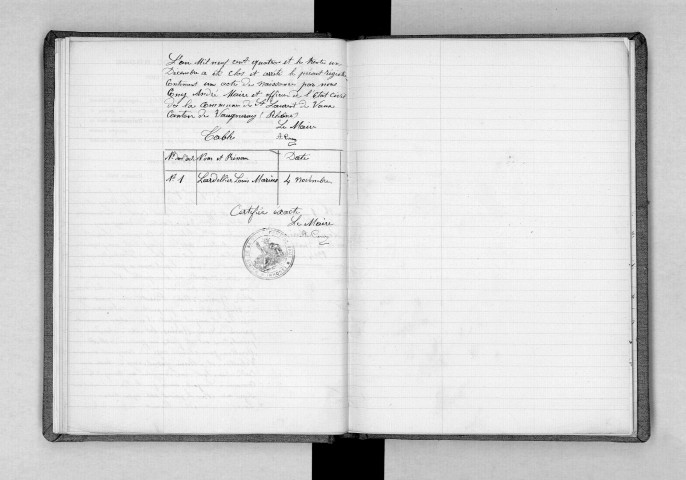 L'an Mil neuf cent quatre et le trente un
Decembre a été clos et arrêté le présent registre
Contenant un acte de naissance par nous
Cony André Maire et officier de l'Etat civil
de la Commune de St Laurent de Vaux
Canton de Vaugneray (Rhône)
Le Maire
Table
Nom et Prénom Date
N° 1 Lardellier Louis Marius 4 novembre
Certifié exact
Le Maire